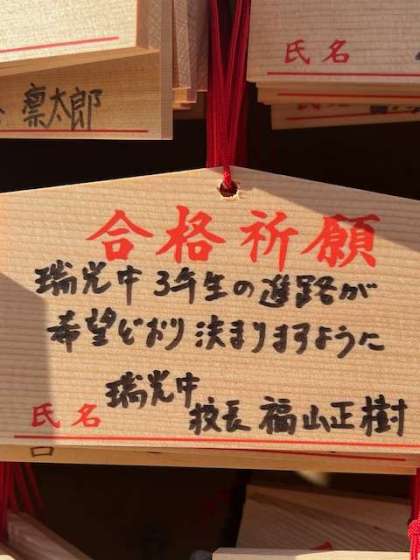 凛太郎
氏名
合格祈願
瑞光中 3年生の進路が
希望どおり 決まりますように
瑞光中
氏名 校長 福山正樹